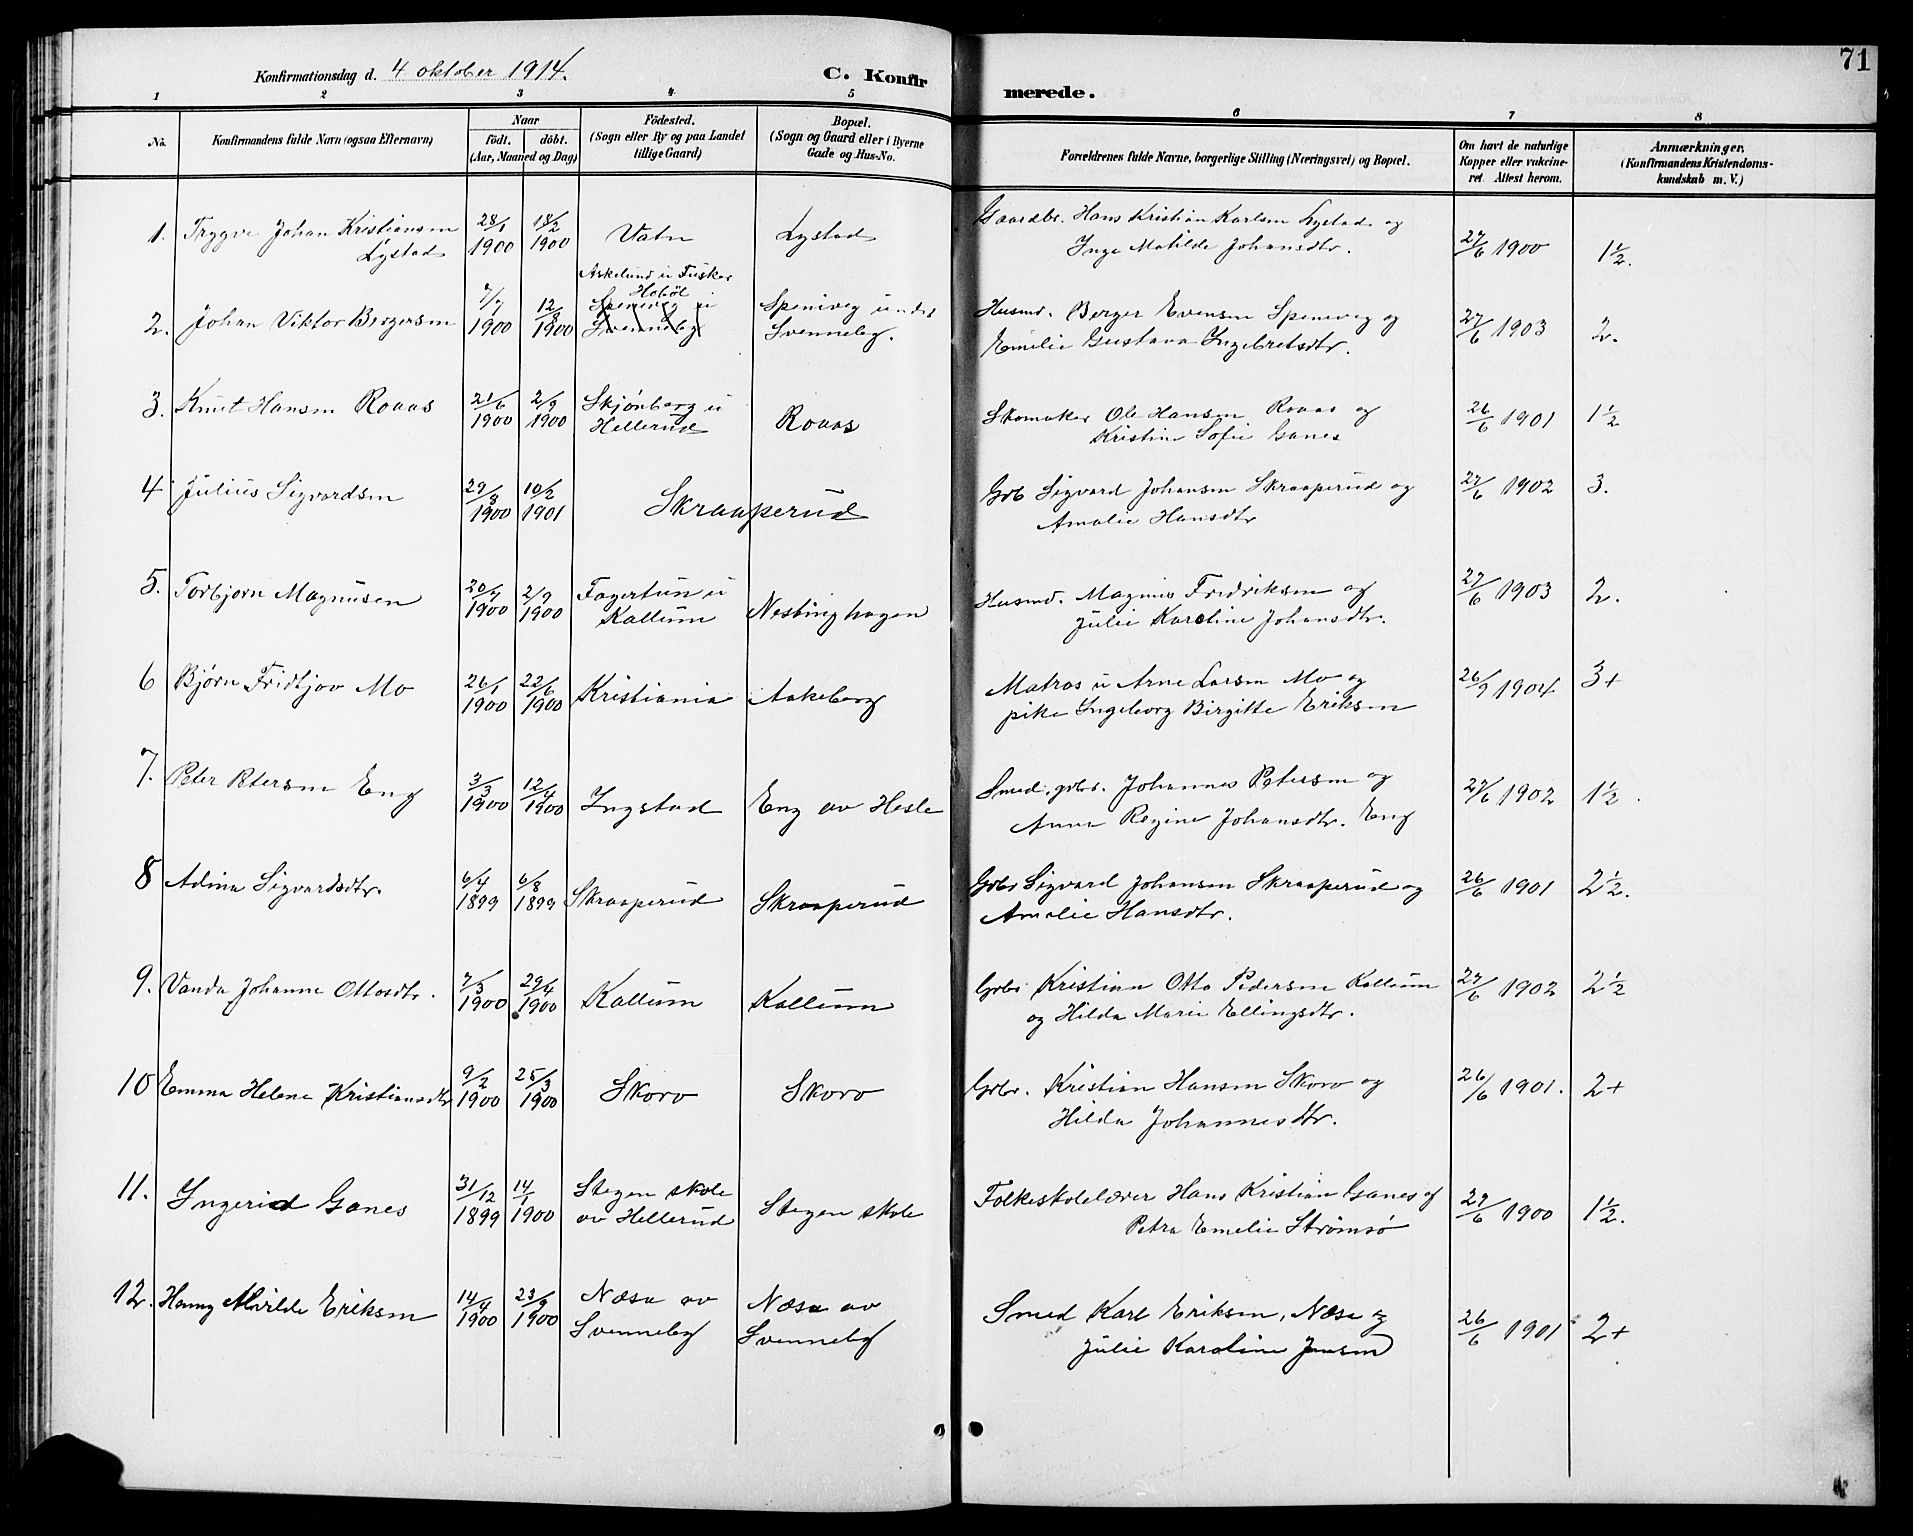 71
Konfirmationsdag d. 4 oktober 1914.
C. Konfirmerede.
1 2 3 4 5 6 7 8
No.
Konfirmandens fulde Navn (ogsaa Efternavn)
Naar
födt. döbt.
(Aar, Maaned og Dag)
Födested.
(Sogn eller By og paa Landet
tillige Gaard)
Bopæl.
(Sogn og Gaard eller i Byerne
Gade og Hus-No.
Forældrenes fulde Navne, borgerlige Stilling (Næringsvei) og Bopæl.
Om havt de naturlige
Kopper eller vakcine-
ret Attest herom.
Anmærkninger.
(Konfirmandens Kristendoms-
kundskab m. V.)
1. Trygve Johan Kristiansen
Lystad
28/1 1900
18/2 1900
Vatn
Lystad
Gaardbr. Hans Kristian Karlsen Lystad og
Inge Matilde Johansdtr.
27/6 1900
1½.
2. Johan Viktor Bergersen
7/7 1900
12/8 1900
Askelund u Tusker
Hobøl
Speneveg u
Svenneby
Speniveg under
Svenneby.
Husmd. Berger Evensen Speneveg og
Emilie Gustava Ingebretsdtr.
27/6 1903
2.
3. Knut Hansen Roaas
21/6 1900
2/9 1900
Skjønberg u
Hellerud
Roaas
Skomaker Ole Hansen Roaas og
Kristine Sofie Ganes
26/6 1901
1½
4 Julius Sigvardsen
29/8 1900
10/2 1901
Skraaperud
Grb Sigvard Johansen Skraaperud og
Amalie Hansdtr
27/6 1902
3.
5. Torbjørn Magnusen
20/7 1900
2/9 1900
Fagertun u
Kallum
Nesbinghagen
Husmd. Magnus Fridriksen og
Julie Karoline Johansdtr.
27/6 1903
2.
6 Bjørn Fridtjov Mo
26/1 1900
22/6 1900
Kristiania
Aakeberg
Matros u Arne Larsen Mo og
pike Ingeborg Birgitte Eriksen
26/9 1904
3+
7. Peter Petersen Eng
3/3 1900
12/4 1900
Ingstad
Eng av Hesle
Smed. grbr. Johannes Petersen og
Anne Regine Johansdtr. Eng
27/6 1902
1½
8 Adina Sigvardsdtr.
6/4 1899
6/8 1899
Skraaperud
Skraaperud
Grbr Sigvard Johansen Skraaperud og
Amalie Hansdtr.
26/6 1901
2½.
9. Vanda Johanne Ottosdtr.
7/3 1900
29/4 1900
Kallum
Kallum
Grbr Kristian Otto Pedersen Kallum
og Hilda Marie Ellingsdtr.
27/6 1902
2½
10 Emma Helene Kristiansdtr
9/2 1900
25/3 1900
Skoro
Skoro
Grbr. Kristian Hansen Skoro og
Hilda Johannesdtr.
26/6 1901.
2+
11. Ingerid Ganes
31/12 1899
14/1 1900
Stegen skole
av Hellerud
Stegen skole
Folkeskolelærer Hans Kristian Ganes og
Petra Emelie Strømsø
27/6 1900
1½.
12. Hanny Alvilde Eriksen
14/4 1900
23/9 1900
Næsa av
Svenneby
Næsa av
Svenneby
Smed Karl Eriksen, Næsa og
Julie Karoline Jensen
26/6 1901
2+